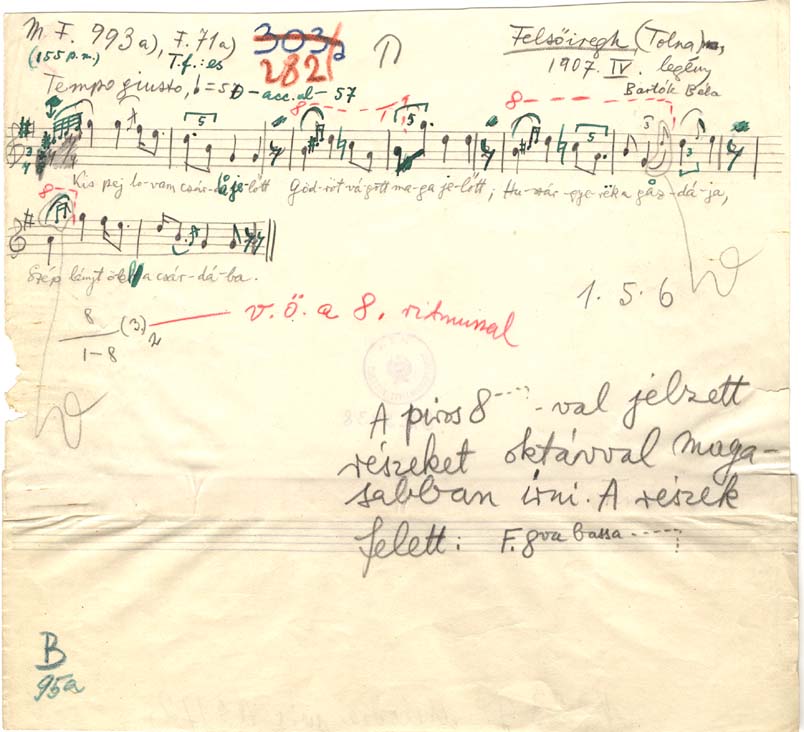 M. F. 993a), F. 71a)
(155 p.m.)
T.f.: es
303/a
282
Felsőiregh (Tolna)
1907. IV. legény
Bartók Béla
Tempo giusto, ♩=50-acc. al-57
8
8
5
5
5
3
3
Kis pej lo-vam csár-då je-lőtt Göd-röt vá-gott ma-ga je-lőtt; Hu-szár-gye-rëk a gåz-dá-ja,
8
Szép lányt öle a csár-dá-ba.
8
1-8
(3)
v. ö. a 8. ritmussal
1. 5. 6
A piros 8---- -val jelzett
részeket oktávval maga-
sabban írni. A részek
felett: F. 8va bassa ----
B
95a